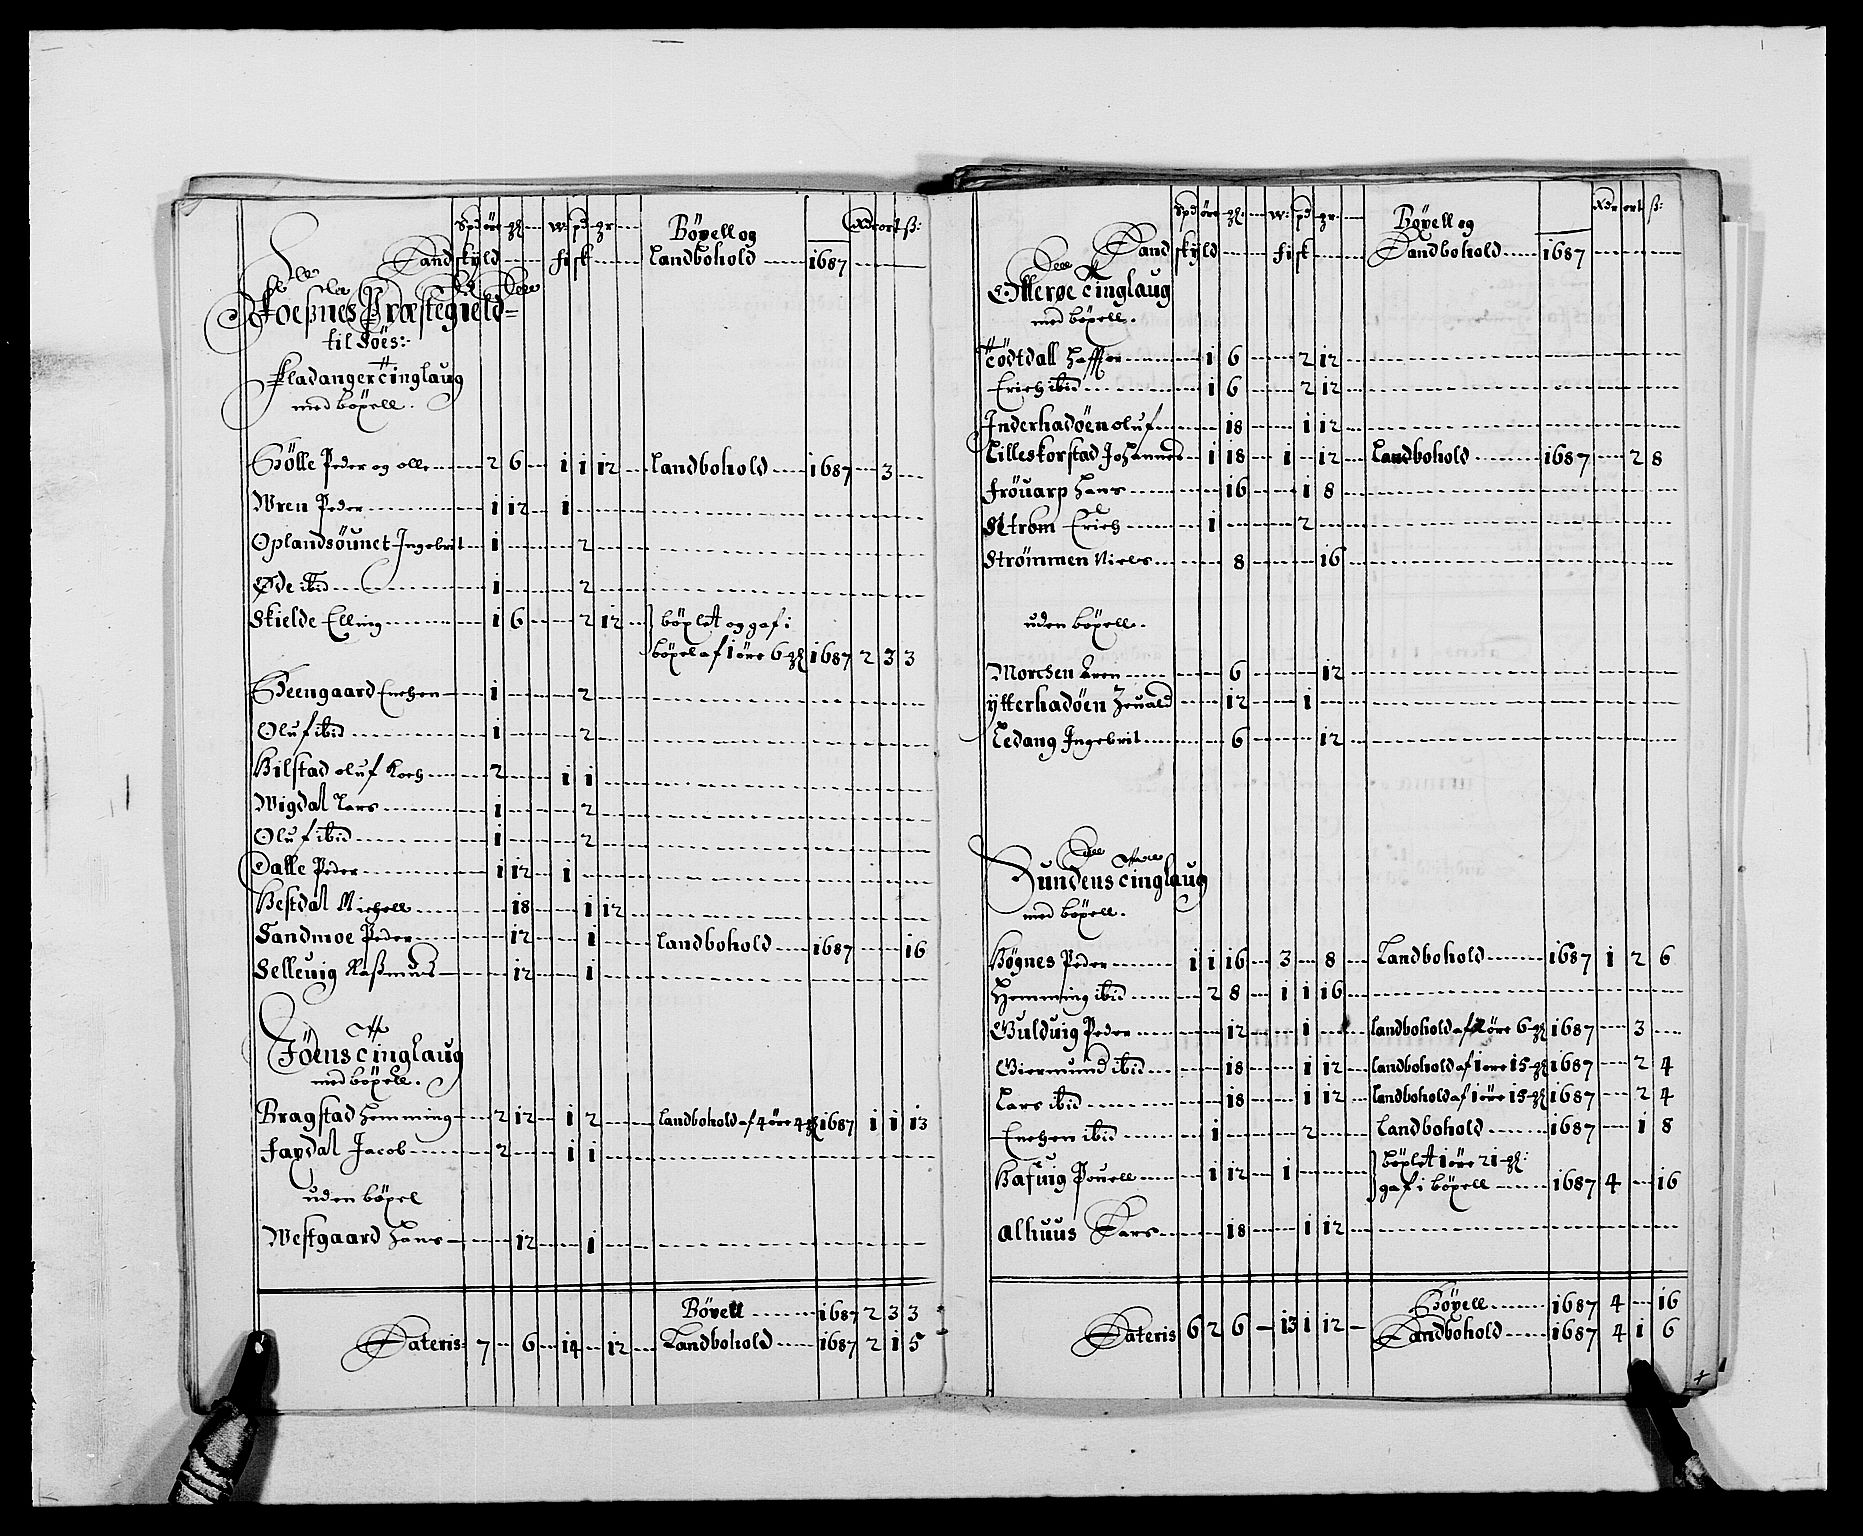 Spd öre gl w: pd gr Böxell og Rdr ort ß:
Landskyld fisk Landbohold 1687
Foesnes Præstegield
til Söes:
Fladanger Tinglaug
med böxell.
Sölle Peder og olle 2 6 1 1 12 Landbohold 1687 3
Wren Peder 1 12 1
Oplandsöunet Ingebrit 1 2
Øde ibid 1 2
Skielde Elling 1 6 2 12 böxlet og gaf i
böxel af 1 öre 6 gl 1687 2 3 3
Seengaard Enchen 1 2
Oluf ibid 1 2
Hilstad oluf Koch 2 1 1
Wigdal Lars 1 2
Oluf ibid 1 2
Dalle Peder 1 12 1
Hestdal Michell 18 1 12
Sandmoe Peder 12 1 Landbohold 1687 16
Selleuig Raßmus 12 1
Födens Tinglaug
med böxell.
Bragstad Hemming 2 12 1 2 Landbohold af 4 öre 4 gl 1687 1 1 13
Faxdal Jacob 2 1 1
uden böxel
Westgaard Hans 12 1
Böxell 1687 2 3 3
Lateris: 7 6 14 12 Landbohold 1687 2 1 5
Spd öre gl: w: pd gr: Böxell og Rdr ort ß:
Landskyld fisk Landbohold 1687
Otterøe Tinglaug
med böxell.
Tödtdall Haffor 1 6 2 12
Erich ibid 1 6 2 12
Inderhadöen oluf 18 1 12
Lilleskorstad Johannes 1 18 1 12 Landbohold 1687 2 8
Fröuarp Hans 16 1 8
Strom Erich 1 2
Strømmen Niels 8 16
uden böxell.
Morchen Aren 6 12
ytterhadöen Zeuald 12 1
Ledang Ingebrit 6 12
Hundens Tinglaug
med böxell.
Høgnes Peder 1 1 16 3 8 Landbohold 1687 1 2 6
Hemming ibid 2 8 1 1 16
Gulduig Peder 12 1 Landbohold af öre 6 gl 1687 3
Giermund ibid 18 1 12 Landbohold af 1 öre 15 gl 1687 2 4
Lars ibid 18 1 12 Landbohold af 1 öre 15 gl 1687 2 4
Enchen ibid 1 2 Landbohold 1687 1 8
Hafuig Pouell 1 12 1 böxlet 1 öre 21 gl:
gaf i böxell 1687 4 16
Alhuus Lars 18 1 12
Böxell 1687 4 16
Lateris 6 2 6 13 1 12 Landbohold 1687 4 1 6